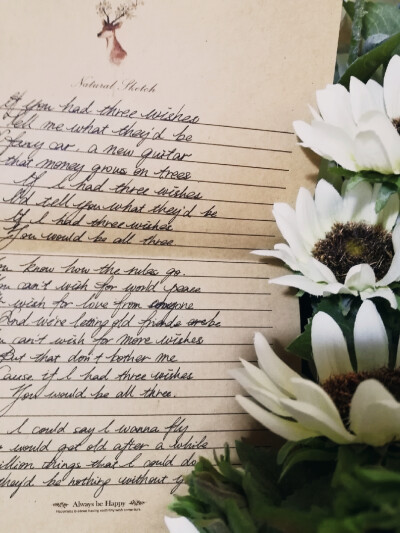 Natural Sketch
If you had three wishes
Tell me what they'd be
Fancy car, a new guitar
that money grows on trees
If I had three wishes
I'd tell you what they'd be
If I had three wishes
You would be all three.
know how the rules go.
can't wish for world peace
wish for love from
And we're letting old
can't wish for more wishes
But that don't bother me
Cause if I had three wishes
You would be all three.
I could say I wanna fly
would get old after a while
million things that I could do
they'd be nothing without
Always be Happy